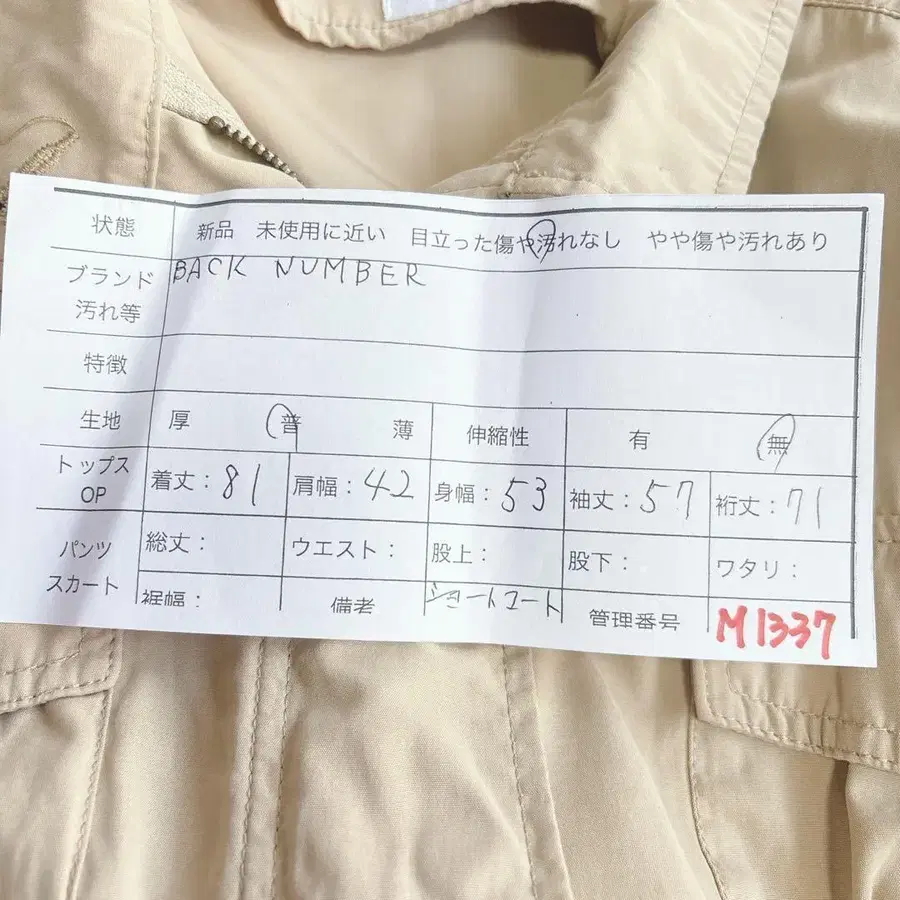 状態 新品 未使用に近い 目立った傷や汚れなし やや傷や汚れあり
ブランド BACK NUMBER
汚れ等
特徴
生地 厚 普 薄 伸縮性 有 無
トップス OP 着丈:81 肩幅:42 身幅:53 袖丈:57 裄丈:71
パンツ スカート 総丈: ウエスト: 股上: 股下: ワタリ:
裾幅: 備考 ショートコート 管理番号 M1337